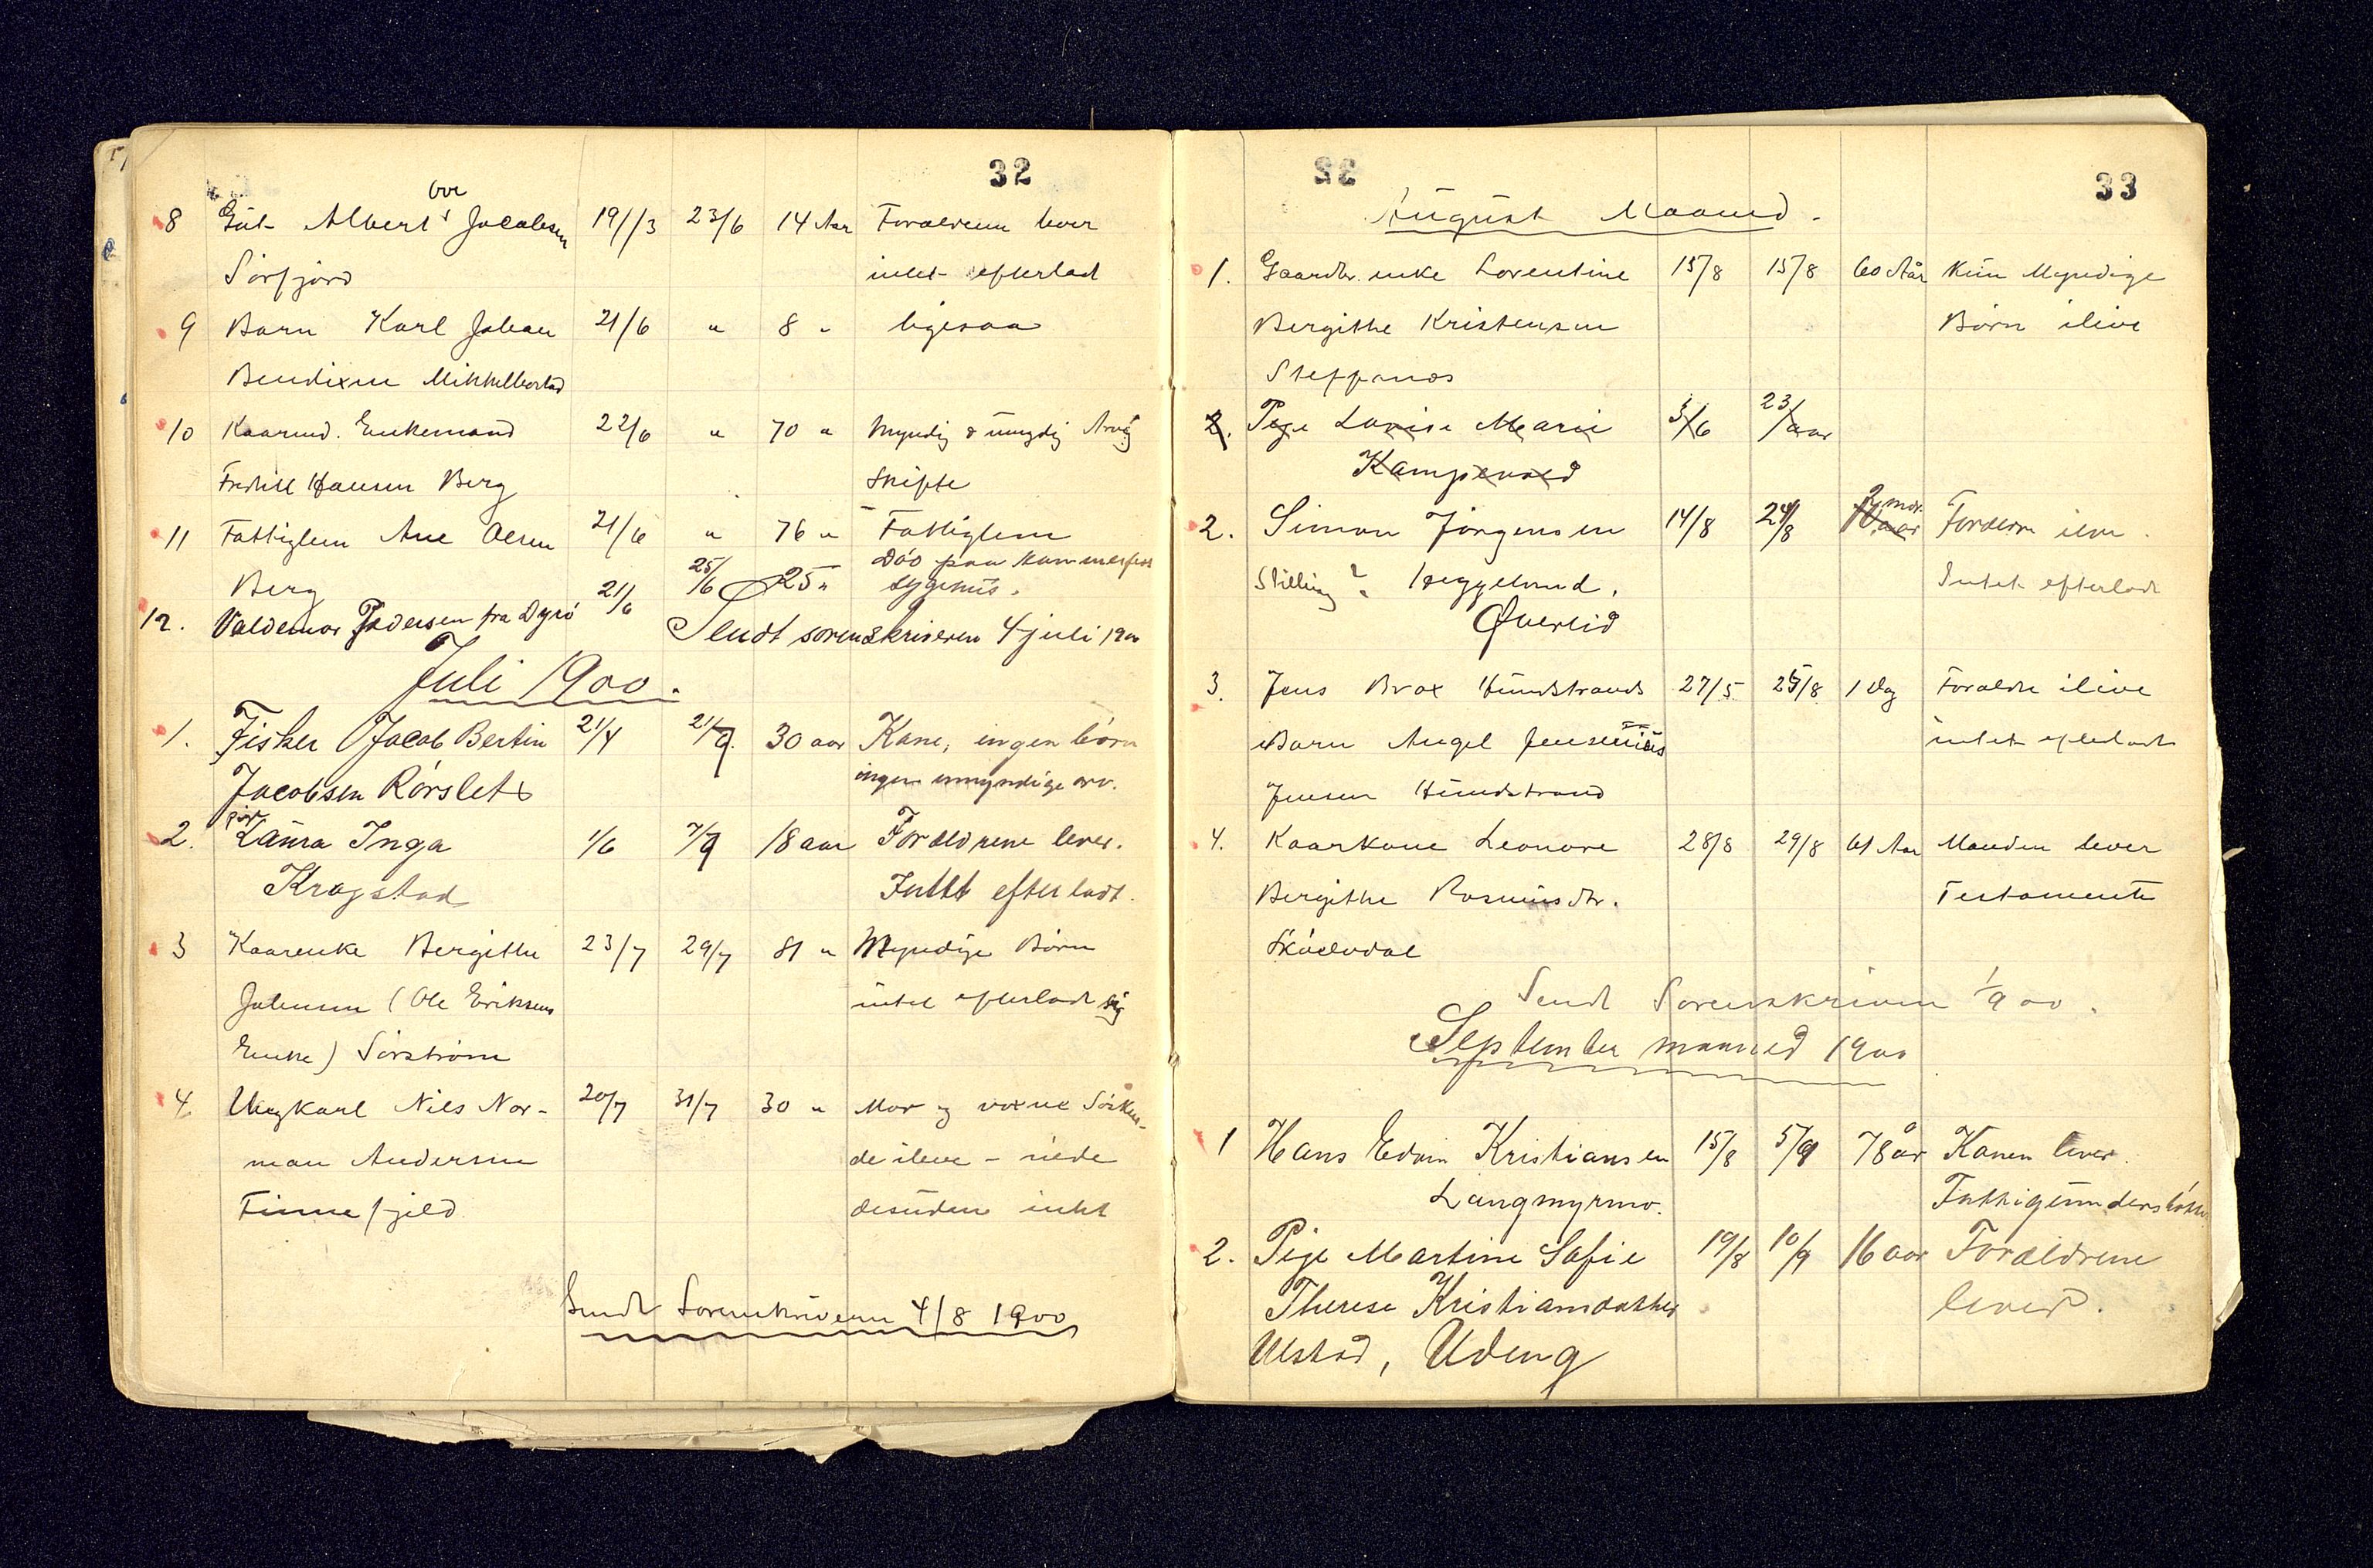 32
8 Gut Albert Ove Jacobsen 19/3 23/6 14 Aar Forældrene lever
Sörfjord intet efterladt
9 Barn Karl Johan 21/6 " 8 " ligesaa
Bendixen Mikkelbostad
10 Kaarmd. Enkemand 22/6 " 70 " Myndig & umyndig
Fredrik Hansen Berg Skifte
11 Fattiglem Ane Olsen 21/6 " 76 " Fattiglem
Berg
12. Valdemar Pedersen fra Dyrö 21/6 25/6 25 " Död paa Hammerfest
sygehus.
Sendt sorenskriveren 4 juli 1900
Juli 1900.
1. Fisker Jacob Bertin 21/4 21/7 30 aar Kone, ingen börn
Jacobsen Rörslett ingen umyndige arv.
2. pige Laura Inga 1/6 7/7 18 aar Forældrene lever.
Krogstad Intet efterladt.
3 Kaarenke Bergithe 23/7 29/7 81 " Myndige Börn
Johnsen (Ole Eriksens intet efterladt sig
Enke) Sörström
4. Ungkarl Nils Nor- 20/7 31/7 30 " Mor og voxne Sösken-
man Andersen de ilive -
Finnefjeld desuden intet
Sendt Sorenskriveren 4/8 1900
32
33
August Maaned.
1. Gaardbr. enke Lorentine 15/8 15/8 60 Aar Kun Myndige
Bergithe Kristensen Börn ilive
Steffenes
2. Pige Lovise Marie 3/6 23 aar
Kampevold
2. Simon Jörgensen 14/8 24/8 2 mdr. Forældre ilive.
Stilling? Heggelund, Intet efterladt
Överlid
3. Jens Brox Hundstrands 27/5 25/8 1 Dag Forældre ilive
Barn Angel Jensenius intet efterladt
Jensen Hundstrand
4. Kaarkone Leonore 28/8 29/8 61 Aar Manden lever
Bergithe Rasmusdtr. Testamente
Skövdal
Sendt Sorenskriveren 1/9 00.
September maaned 1900
1 Hans Edvin Kristiansen 15/8 5/9 78 år Konen lever.
Langmyrmo. Fattigunderstöttet
2. Pige Martine Sofie 19/8 10/9 16 aar Forældrene
Therese Kristiansdatter lever.
Ulstad,